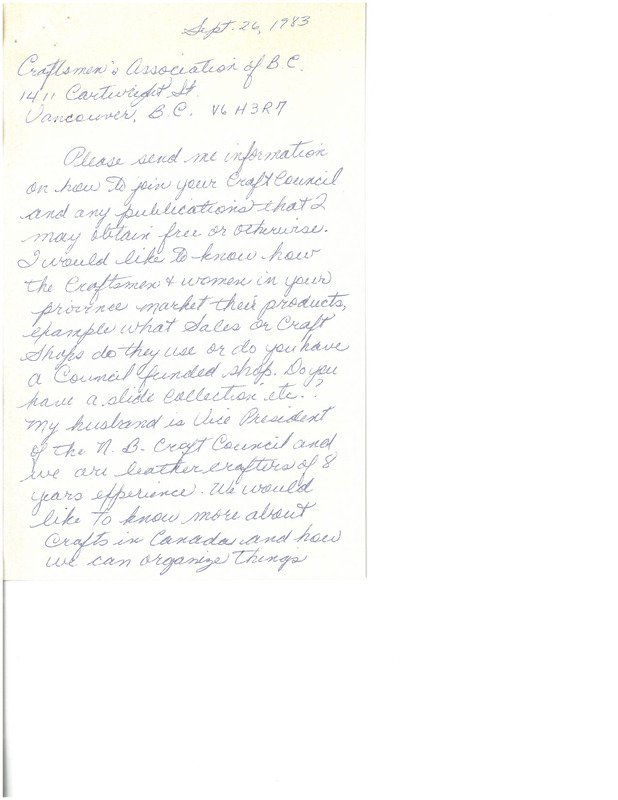 Sept. 26, 1983
Craftsmen's Association of B.C.
1411 Cartwright St.
Vancouver, B.C. V6H3R7
Please send me information
on how to join your Craft Council
and any publications that I
may obtain free or otherwise.
I would like to know how
the Craftsmen & women in your
province market their products,
example what Sales or Craft
Shops do they use or do you have
a Council funded shop. Do you
have a slide collection etc..?
My husband is Vice President
of the N.B. Craft Council and
we are leather crafters of 8
years experience. We would
like to know more about
Crafts in Canada and how
we can organize things